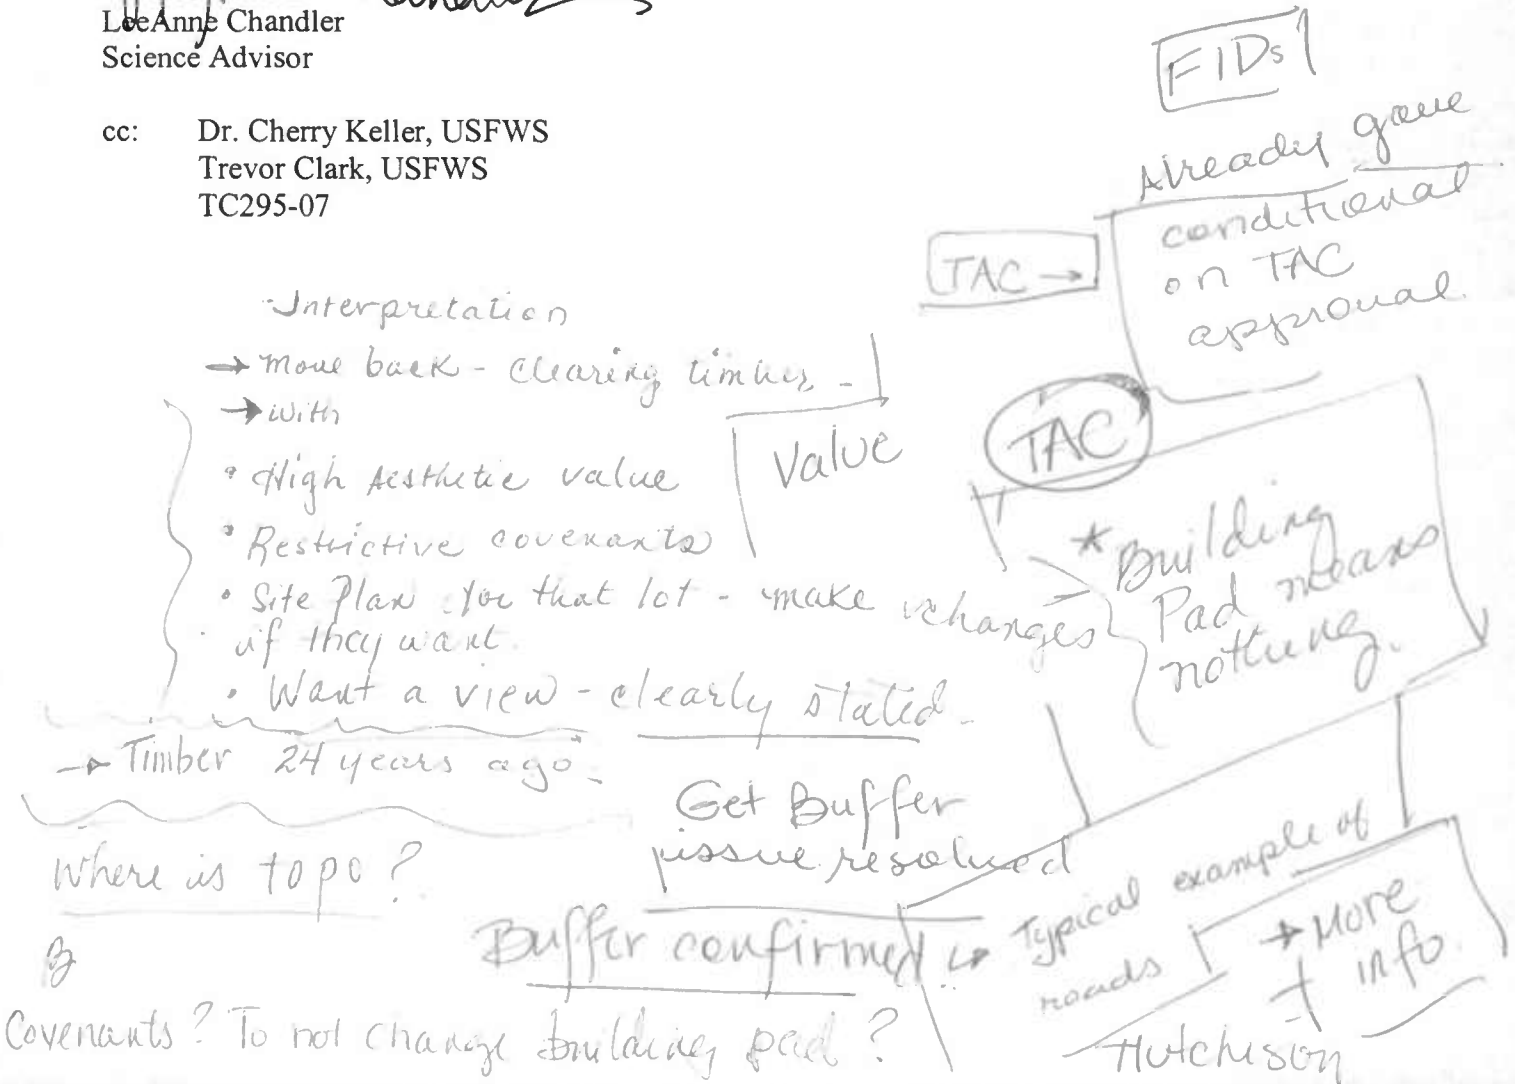 LeeAnne Chandler
Science Advisor
cc: Dr. Cherry Keller, USFWS
Trevor Clark, USFWS
TC295-07
FIDs
Already gave
conditional
on TAC
approval.
TAC →
-Interpretation
→ move back - clearing timber -
→ with
• High Aesthetic value
• Restrictive covenants
• Site Plan for that lot - make changes
if they want.
• Want a view - clearly stated -
Value
TAC
* Building
Pad means
nothing.
→ Timber 24 years ago -
Get Buffer
issue resolved
Where is topo?
Buffer confirmed
→ Typical example of
roads
→ More
info
Hutchison
Covenants? To not change building pad?